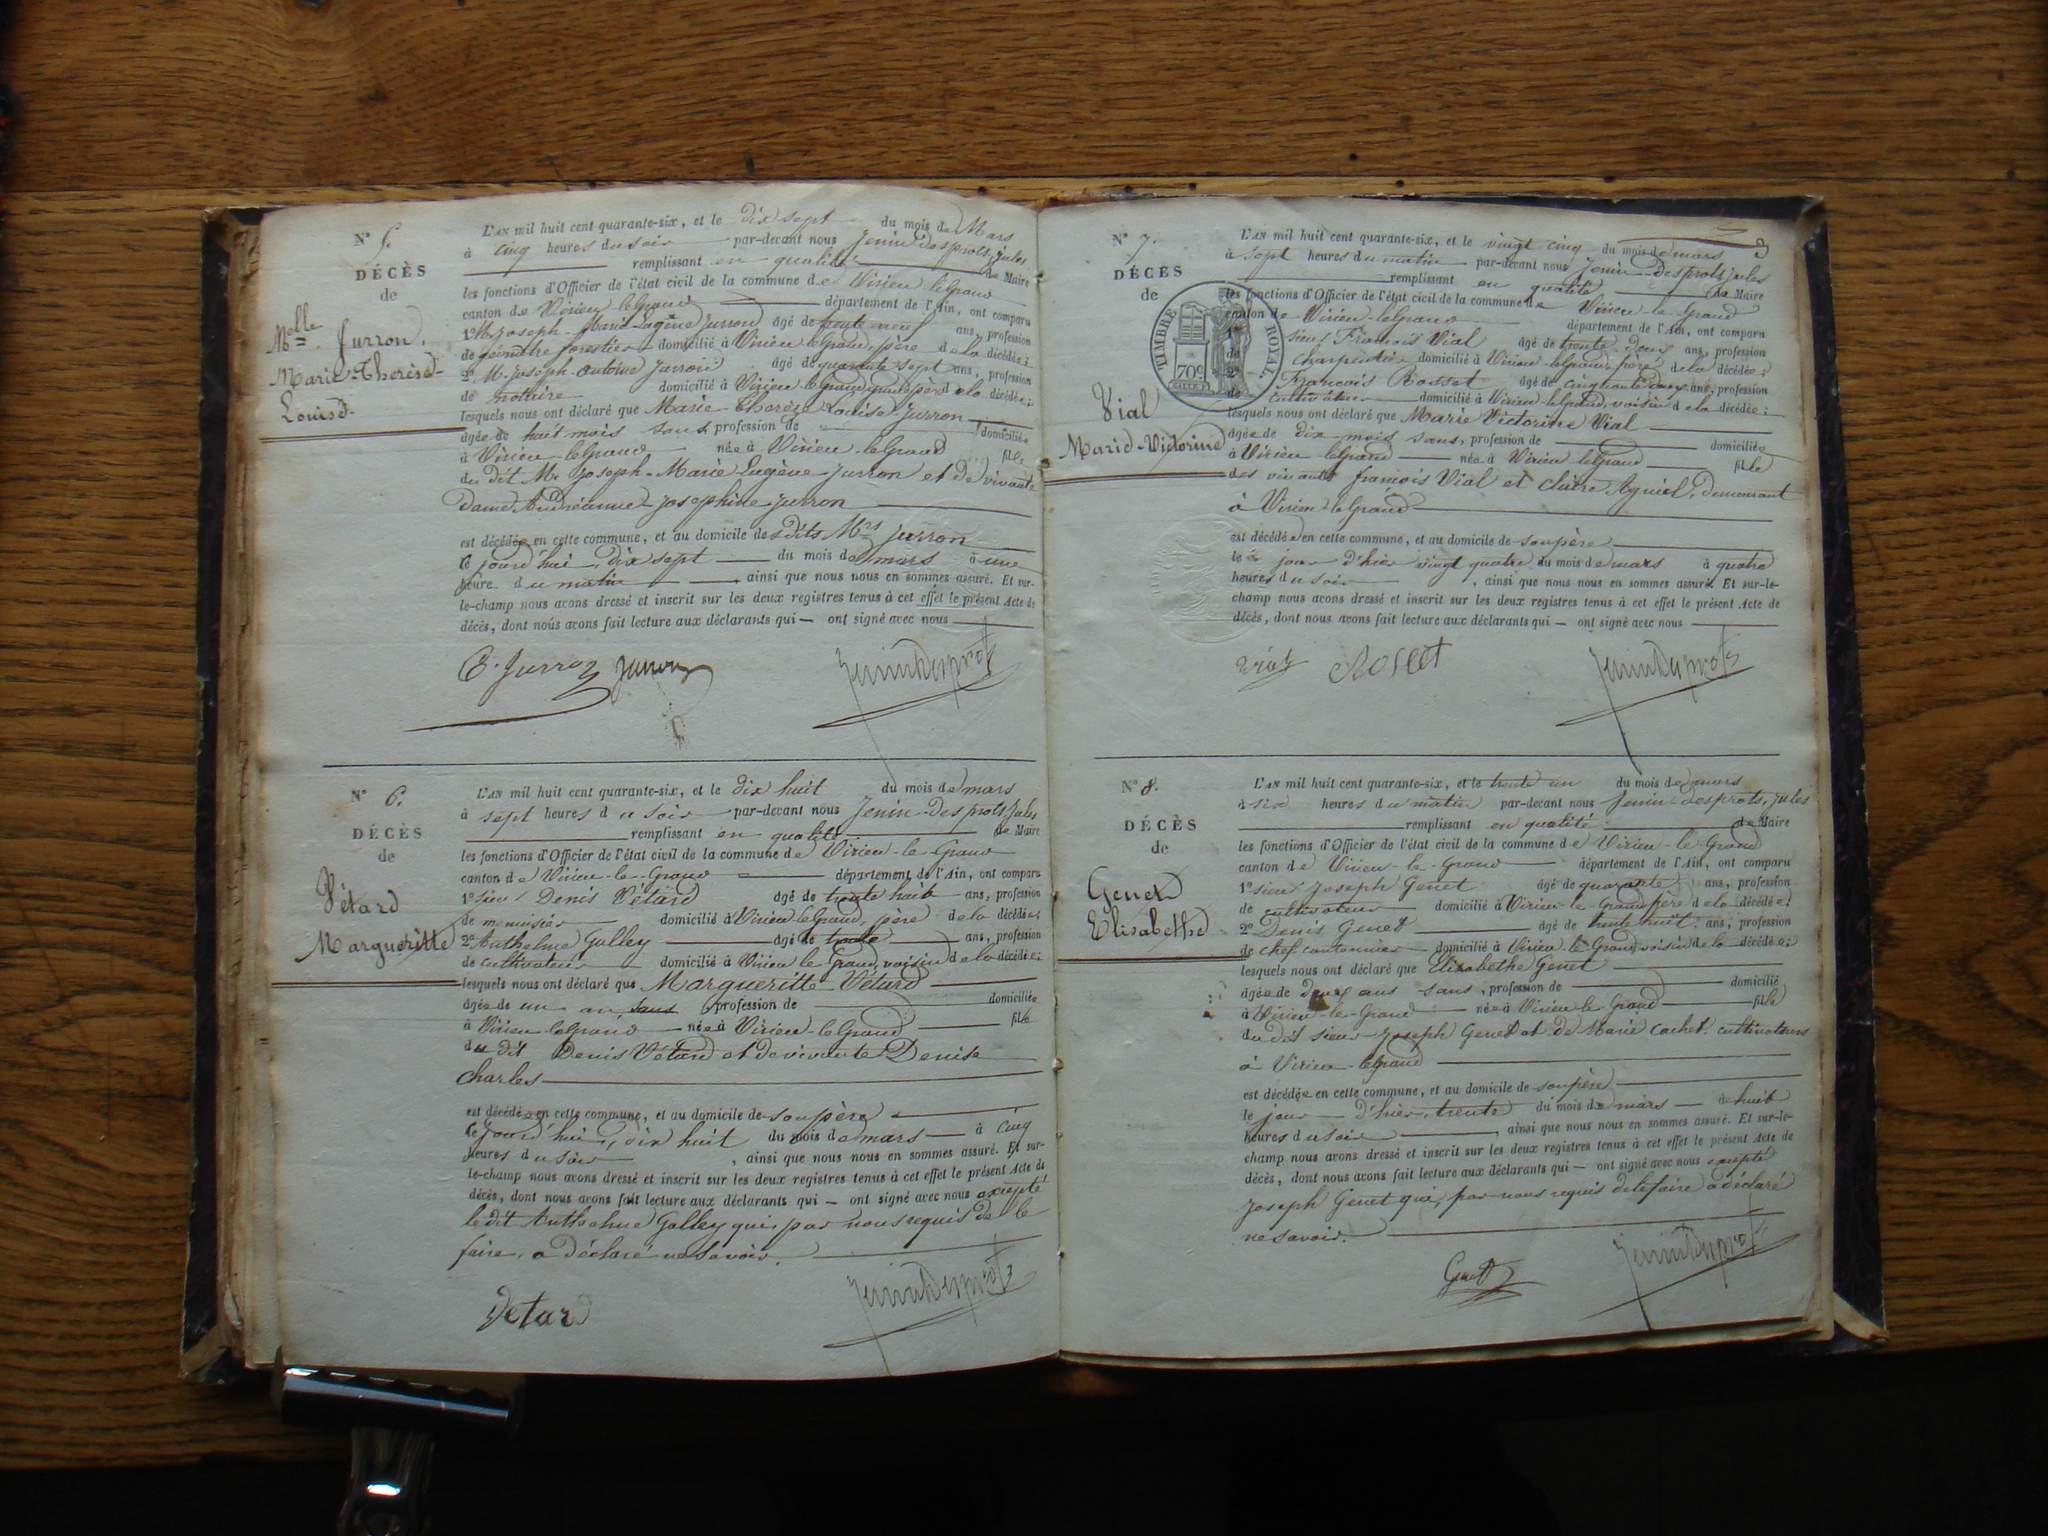 N° 5.
DÉCÈS
de
Melle Jurron.
Marie-Therèse-
Louise.
L'AN mil huit cent quarante-six, et le dix sept du mois de Mars
à cinq heures du soir par-devant nous Jenin Desprots, Jules
remplissant en qualité de Maire
les fonctions d'Officier de l'état civil de la commune de Virieu leGrand
canton de Virieu leGrand département de l'Ain, ont comparu
1° Mr Joseph-Marie Eugène Jurron âgé de trente neuf ans, profession
de géomètre forestier domicilié à Virieu leGrand, père de la décédée;
2° M. Joseph-Antoine Jurron âgé de quarante sept ans, profession
de notaire domicilié à Virieu leGrand, grand père de la décédée;
lesquels nous ont déclaré que Marie Therèse Louise Jurron
âgée de huit mois sans profession de domiciliée
à Virieu leGrand née à Virieu leGrand fille
du dit Mr Joseph-Marie Eugène Jurron et de vivante
Dame Joséphine Jurron
est décédée en cette commune, et au domicile desdits Mrs Jurron
ce jourd'hui, dix sept du mois de mars à une
heure du matin, ainsi que nous nous en sommes assuré. Et sur-
le-champ nous avons dressé et inscrit sur les deux registres tenus à cet effet le présent Acte de
décès, dont nous avons fait lecture aux déclarants qui — ont signé avec nous
E. Jurron Jurron JeninDesprots
N° 6.
DÉCÈS
de
Vétard
Margueritte
L'AN mil huit cent quarante-six, et le dix huit du mois de mars
à sept heures du soir par-devant nous Jenin-Desprots, Jules
remplissant en qualité de Maire
les fonctions d'Officier de l'état civil de la commune de Virieu-le Grand
canton de Virieu-le-Grand département de l'Ain, ont comparu
1° sieur Denis Vétard âgé de trente huit ans, profession
de menuisier domicilié à Virieu leGrand, père de la décédée;
2° Anthelme Galley âgé de trente ans, profession
de cultivateur domicilié à Virieu le Grand, voisin de la décédée;
lesquels nous ont déclaré que Margueritte Vétard
âgée de un an sans profession de domiciliée
à Virieu-leGrand née à Virieu-leGrand fille
du dit Denis Vétard et de vivante Denise
Charles
est décédée en cette commune, et au domicile de son père
ce jourd'hui, dix huit du mois de mars à cinq
heures du soir, ainsi que nous nous en sommes assuré. Et sur-
le-champ nous avons dressé et inscrit sur les deux registres tenus à cet effet le présent Acte de
décès, dont nous avons fait lecture aux déclarants qui — ont signé avec nous excepté
le dit Anthelme Galley qui, par nous requis de le
faire, a déclaré ne savoir.
Vetard JeninDesprots
3
N° 7.
DÉCÈS
de
Vial
Marie-Victorine
TIMBRE ROYAL.
70c
L'AN mil huit cent quarante-six, et le vingt cinq du mois de mars
à sept heures du matin par-devant nous Jenin-Desprots, Jules
remplissant en qualité de Maire
les fonctions d'Officier de l'état civil de la commune de Virieu-le Grand
canton de Virieu-leGrand département de l'Ain, ont comparu
1° sieur François Vial âgé de trente-deux ans, profession
de charpentier domicilié à Virieu-leGrand, père de la décédée;
2° François Rosset âgé de cinquante deux ans, profession
de cultivateur domicilié à Virieu-leGrand, voisin de la décédée;
lesquels nous ont déclaré que Marie Victorine Vial
âgée de dix mois sans, profession de domiciliée
à Virieu leGrand née à Virieu leGrand fille
des vivants françois Vial et Claire demeurant
à Virieu-leGrand
est décédée en cette commune, et au domicile de son père
le jour d'hier vingt quatre du mois de mars à quatre
heures du soir, ainsi que nous nous en sommes assuré. Et sur-le-
champ nous avons dressé et inscrit sur les deux registres tenus à cet effet le présent Acte de
décès, dont nous avons fait lecture aux déclarants qui — ont signé avec nous
Vial Rosset JeninDesprots
N° 8.
DÉCÈS
de
Genet
Elisabethe
L'AN mil huit cent quarante-six, et le trente un du mois de mars
à six heures du matin par-devant nous Jenin-Desprots, Jules
remplissant en qualité de Maire
les fonctions d'Officier de l'état civil de la commune de Virieu-le-Grand
canton de Virieu-le-Grand département de l'Ain, ont comparu
1° sieur Joseph Genet âgé de quarante ans, profession
de cultivateur domicilié à Virieu-le-Grand père de la décédée;
2° Denis Genet âgé de trente huit ans, profession
de chef cantonnier domicilié à Virieu-le-Grand, voisin de la décédée;
lesquels nous ont déclaré que Elisabethe Genet
âgée de deux ans sans, profession de domicilié
à Virieu-le-Grand née à Virieu-le-Grand fille
du dit sieur Joseph Genet et de Marie Cachet cultivateurs
à Virieu-leGrand
est décédée en cette commune, et au domicile de son père
le jour d'hier, trente du mois de mars à huit
heures du soir, ainsi que nous nous en sommes assuré. Et sur-le-
champ nous avons dressé et inscrit sur les deux registres tenus à cet effet le présent Acte de
décès, dont nous avons fait lecture aux déclarants qui — ont signé avec nous excepté
Joseph Genet qui, par nous requis de le faire a déclaré
ne savoir.
Genet JeninDesprots